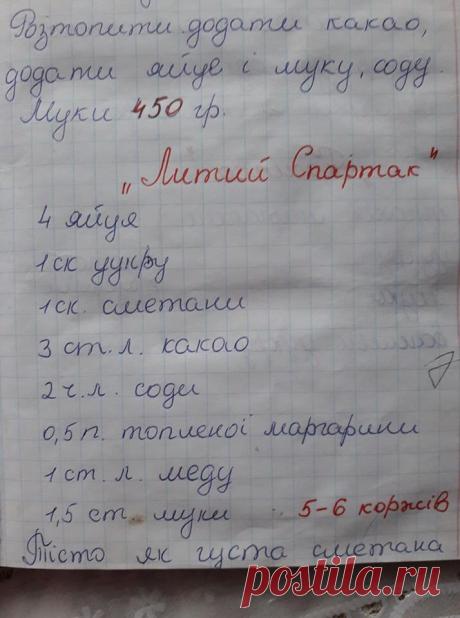 Розтопити додати какао,
додати яйце і муку, соду.
Муки 450 гр.
"Литий Спартак"
4 яйця
1ск цукру
1ск. сметани
3 ст.л. какао
2 ч.л. соди
0,5 п. топленої маргарини
1 ст. л. меду
1,5 ст. муки 5-6 коржів
Тісто як густа сметана
postila.ru